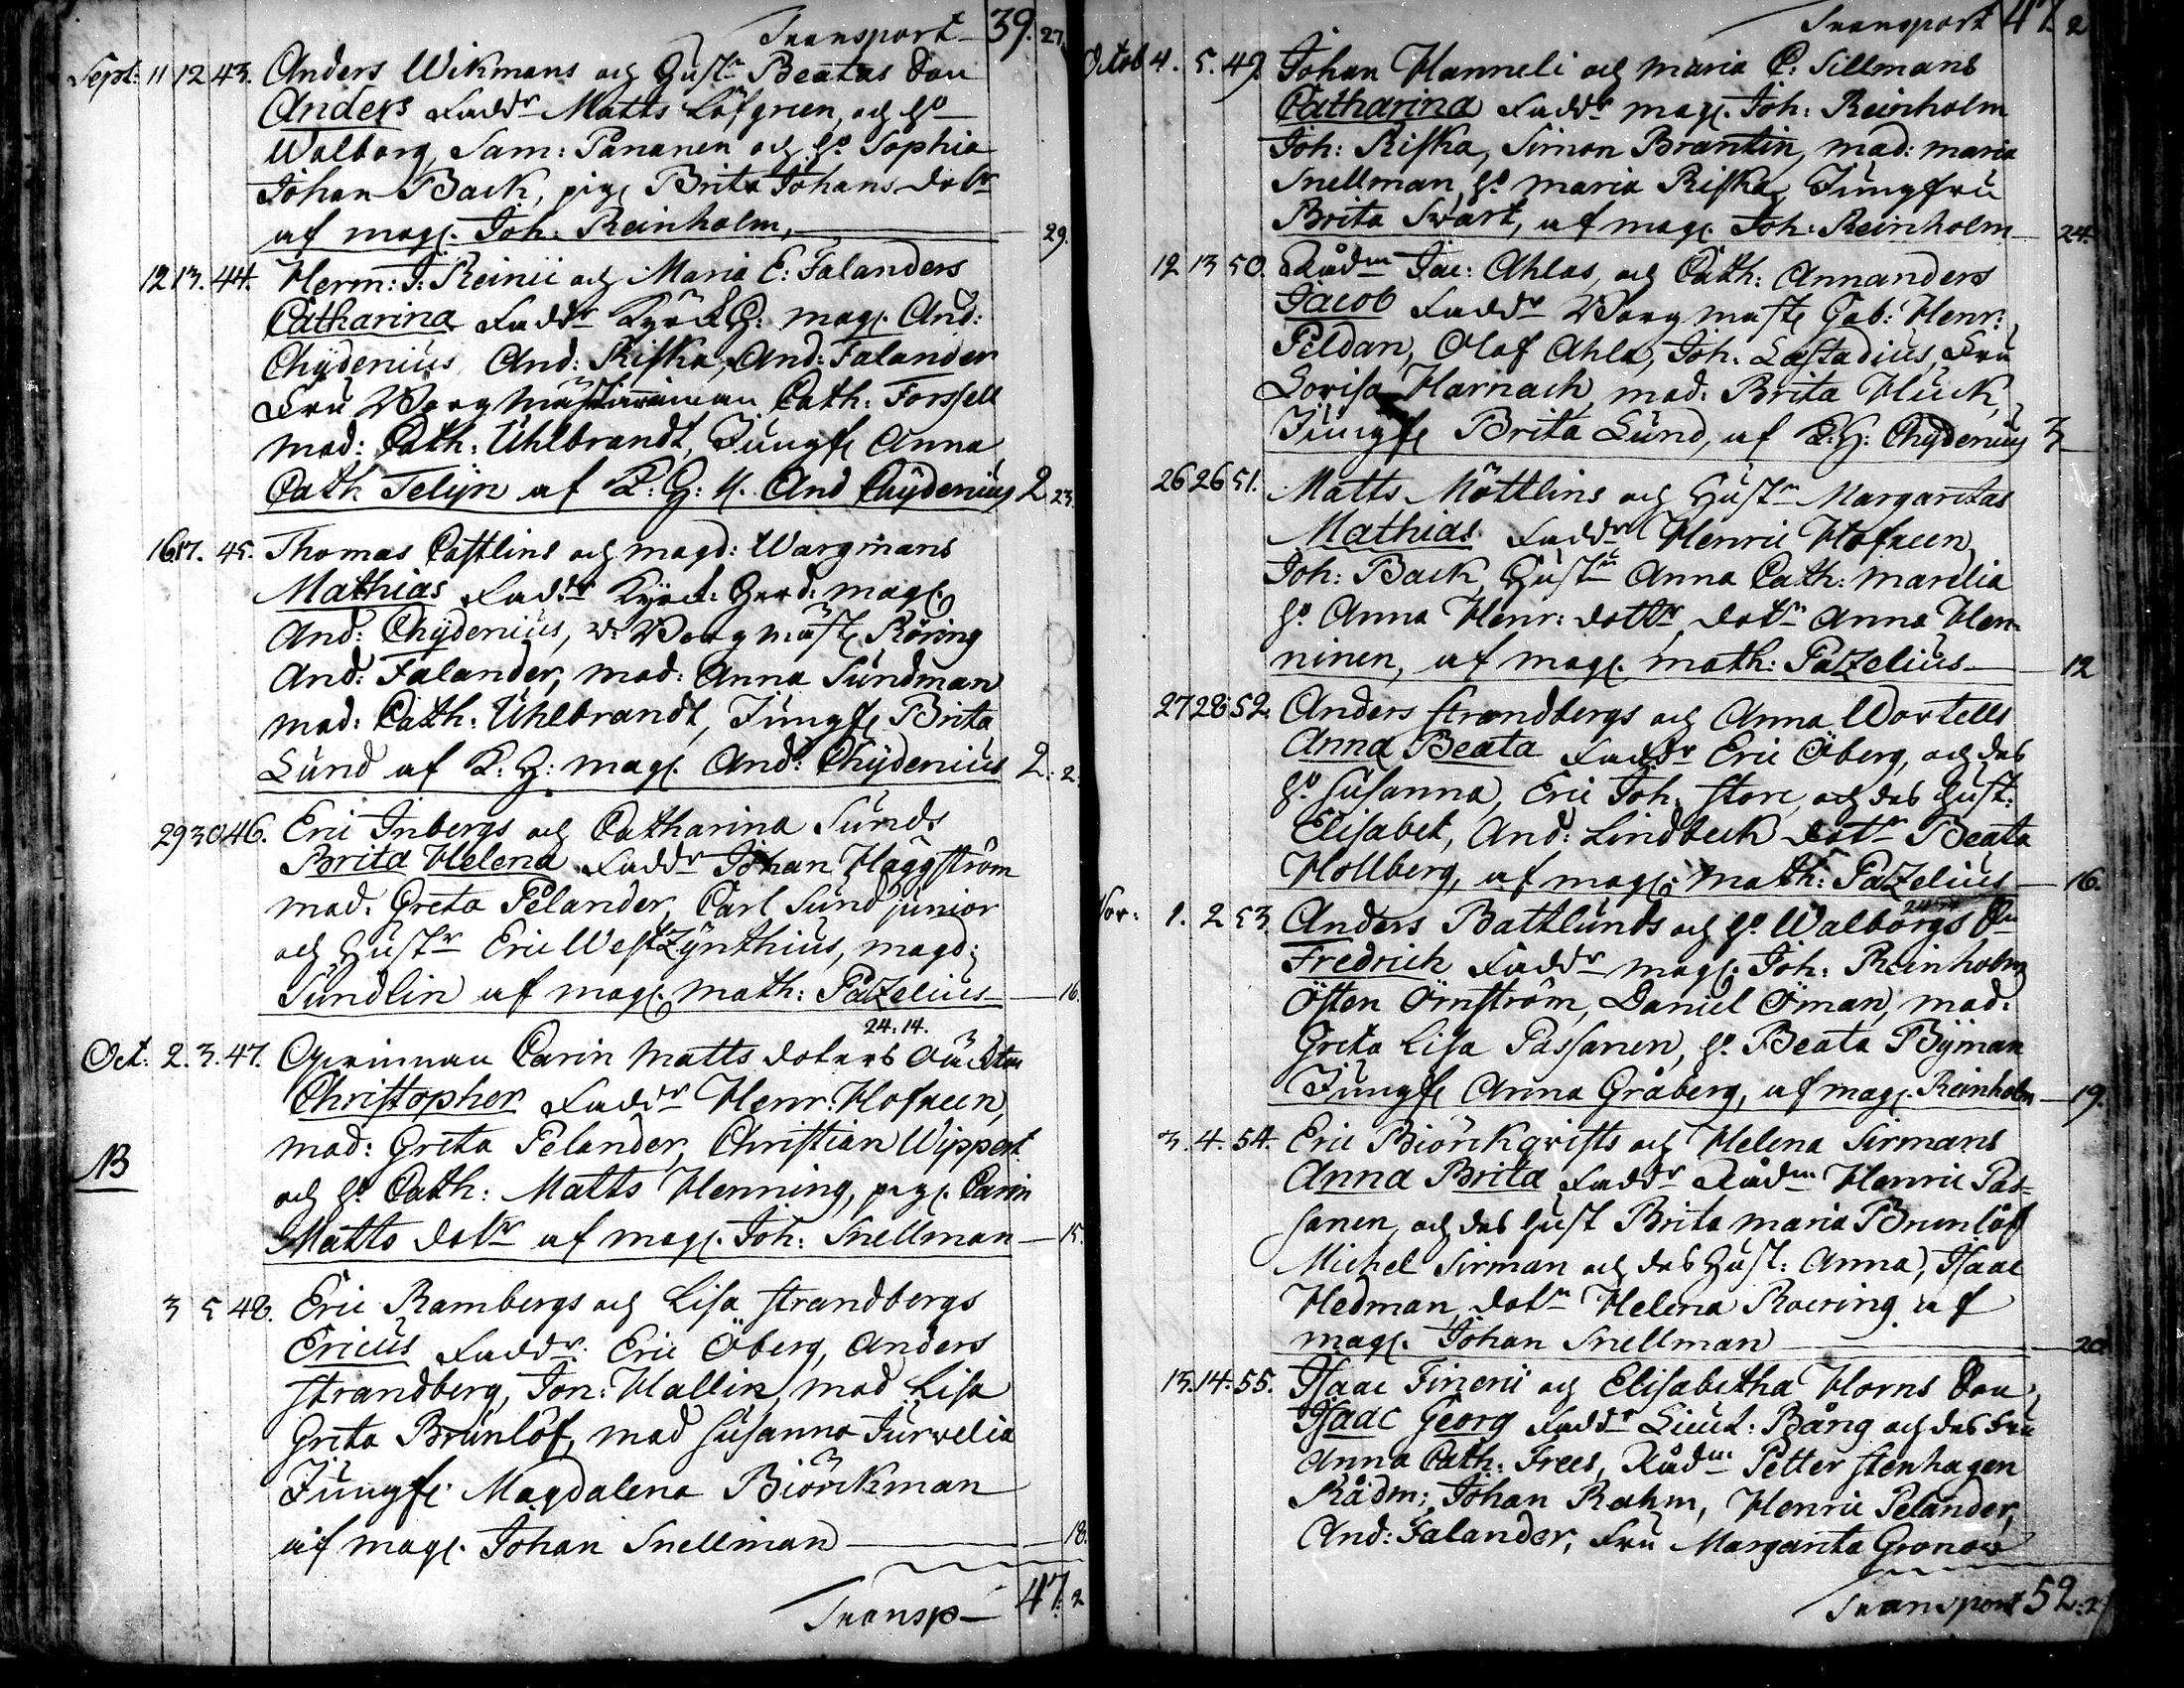 Transport 39. 27
Sept: 11 12 43. Anders Wikmans och Hustr Beatas Son
Anders Faddr Matts Löfgreen, och H:o
Walborg, Sam: Pananen och H:o Sophia
Johan Back, pig. Brita Johans dotr
af mag. Joh: Reinholm, 29.
12 13. 44. Herm: J: Reinii och Maria E: Falanders
Catharina Faddr Kyrck H: mag. And:
Chydenius, And: Riska, And: Falander
Fru Borgmästarinnan Cath: Forssell
mad: Cath: Uhlbrandt, Jungf. Anna
Cath Telijn af K: H: M. And Chydenius 2 23
16 17. 45. Thomas Castlins och magd: Wargmans
Mathias Faddr Kyrck: Herd: mag.
And: Chydenius, v: Borgmäst. Röring
And: Falander, mad: Anna Sundman
mad: Cath: Uhlbrandt, Jungf. Brita
Lund af K: H: mag. And: Chydenius 2. 2.
29 30 46. Eric Inbergs och Catharina Sunds
Brita Helena Faddr Johan Häggström
mad. Greta Pelander, Carl Sund junior
och Hustr Eric West Zynthius, magd:
Sundlin af mag. math: Pazelius 16.
24. 14.
Oct: 2. 3. 47. Carin Matts doters
Christopher Faddr Henr: Hofreen,
mad: Greta Pelander, Christian Wippert
NB och H:o Cath: Matts Henning, pig. Carin
Matts dotr af mag. Joh: Snellman 15.
3 5 48. Eric Rambergs och Lisa Strandbergs
Ericus Faddr: Eric Öberg, Anders
Strandberg, Jon: Hallin, mad Lisa
Greta Brunlöf, mad Susanna Jurvelia
Jungf. Magdalena Biörckman
af mag. Johan Snellman 18.
Transp 47. 2
Transport 47. 2
Octob 4. 5. 49. Johan Hanneli och Maria C: Sillmans
Catharina Faddr mag. Joh: Reinholm
Joh: Riska, Simon Brantin, mad: maria
Snellman, H:o maria Riska, Jungfru
Brita Swart, af mag. Joh: Reinholm 24.
12 13 50. Rådm Jac: Ahlas, och Cath: Annanders
Jacob Faddr Borgmäst. Gab: Henr:
Peldan, Olof Ahla, Joh: Læstadius, Fru
Lovisa Harnach, mad. Brita Huck,
Jungf. Brita Lund, af K: H: Chydenius 3
26 26 51. Matts Möttlins och Hustr Margaretas
Mathias Faddr Henric Hofreen,
Joh: Back, Hustr Anna Cath: Marelia
H:o Anna Henr: dottr, dotr Anna Hen-
ninen, af mag. math: Pazelius 12
27 28 52. Anders Strandbergs och Anna Wortells
Anna Beata Faddr Eric Öberg, och des
H:o Susanna, Eric Joh: Store, och des Hust:
Elisabet, And: Lindbeck dotr Beata
Hollberg, af mag. Math: Pazelius 16.
Nov: 1. 2 53. Anders Battlunds och H:o Walborgs Sn
Fredrich Faddr mag. Joh: Reinholm
Östen Örnström, Daniel Öman, mad:
Greta Lisa Passanen, H:o Beata Byman
Jungf. Anna Gråberg, af mag. Reinholm 19.
3. 4. 54. Eric Biörckqvists och Helena Sirmans
Anna Brita Faddr Rådm Henric Pas-
sanen, och des Hust Brita maria Brunlöf
Michel Sirman och des Hust: Anna, Isaac
Hedman, dotr Helena Roering af
mag. Johan Snellman 20.
13. 14. 55. Isaac Finerii och Elisabetha Horns Son,
Isaac Georg Faddr Lieut: Bång och des Fru
Anna Cath: Frees, Rådm Petter Stenhagen
Rådm: Johan Rahm, Henric Pelander,
And: Falander, Fru Margareta Gronow
Transport 52.